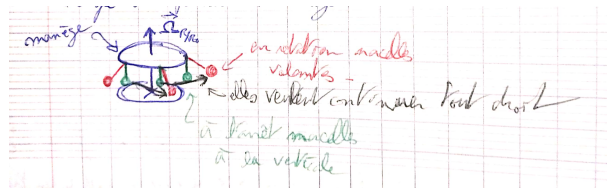 manège
Ω R/R₀
en rotation nacelles
volantes
elles veulent continuer tout droit
à l'arrêt nacelles
à la verticale